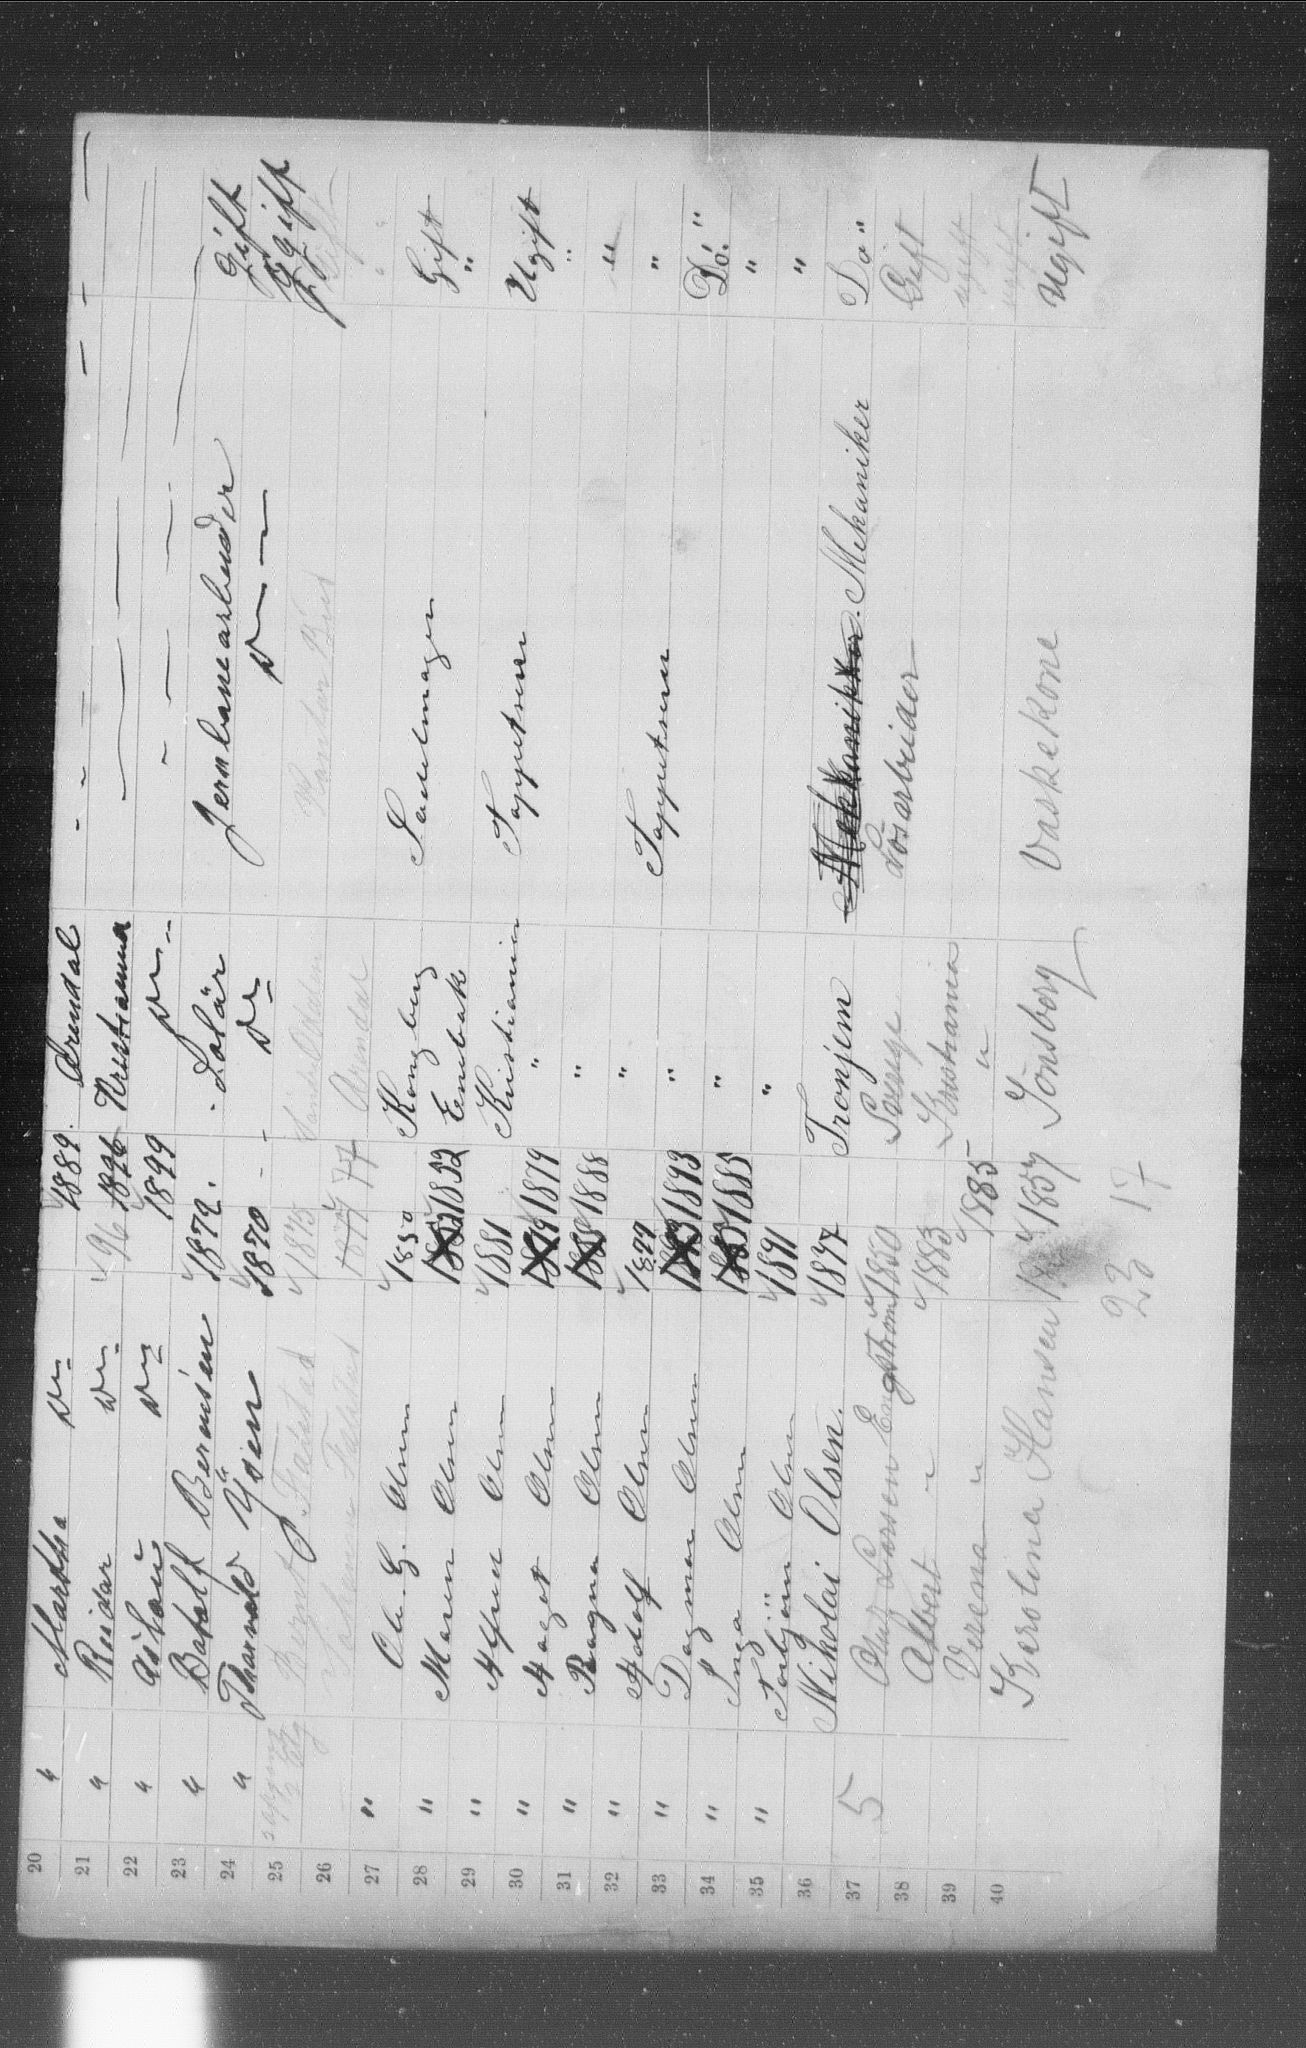 20 " Martha Do 1889. Arendal
21 " Reidar Do 96 1896 Kristiania
22 " Do 1899 Do
23 " Berntsen 1872. Solør Jernbanearbeider Gift
24 " Do Do Gift
25 Bernt 1875
26 1877 77 Arendal
27 " Ole G. Olsen 1850 Kongberg Sadelmager Gift
28 " Maren Olsen 1852 1852 Enebak "
29 " Alfred Olsen 1881 Kristiania Tappetserer Ugift
30 " Aagot Olsen 1879 1879 " "
31 " Ragna Olsen 1888 1888 " "
32 " Adolf Olsen 1877 " Tappetserer "
33 " Dagmar Olsen 1893 1893 " Do. "
34 " Inga Olsen 1885 1885 " "
35 " Torbjørn Olsen 1891 " "
36 Nikolai Olsen. 1897 Tronjem Mekkaniker. Mekaniker Do "
37 5 Larsen Engstrøm 1850 Sverige Løsarbeider Gift
38 Albert " 1883 Kristiania ugift
39 Verena " 1885 " ugift
40 Karolina Hansen 1857 Jönsborg Vaskekone Ugift
23 17